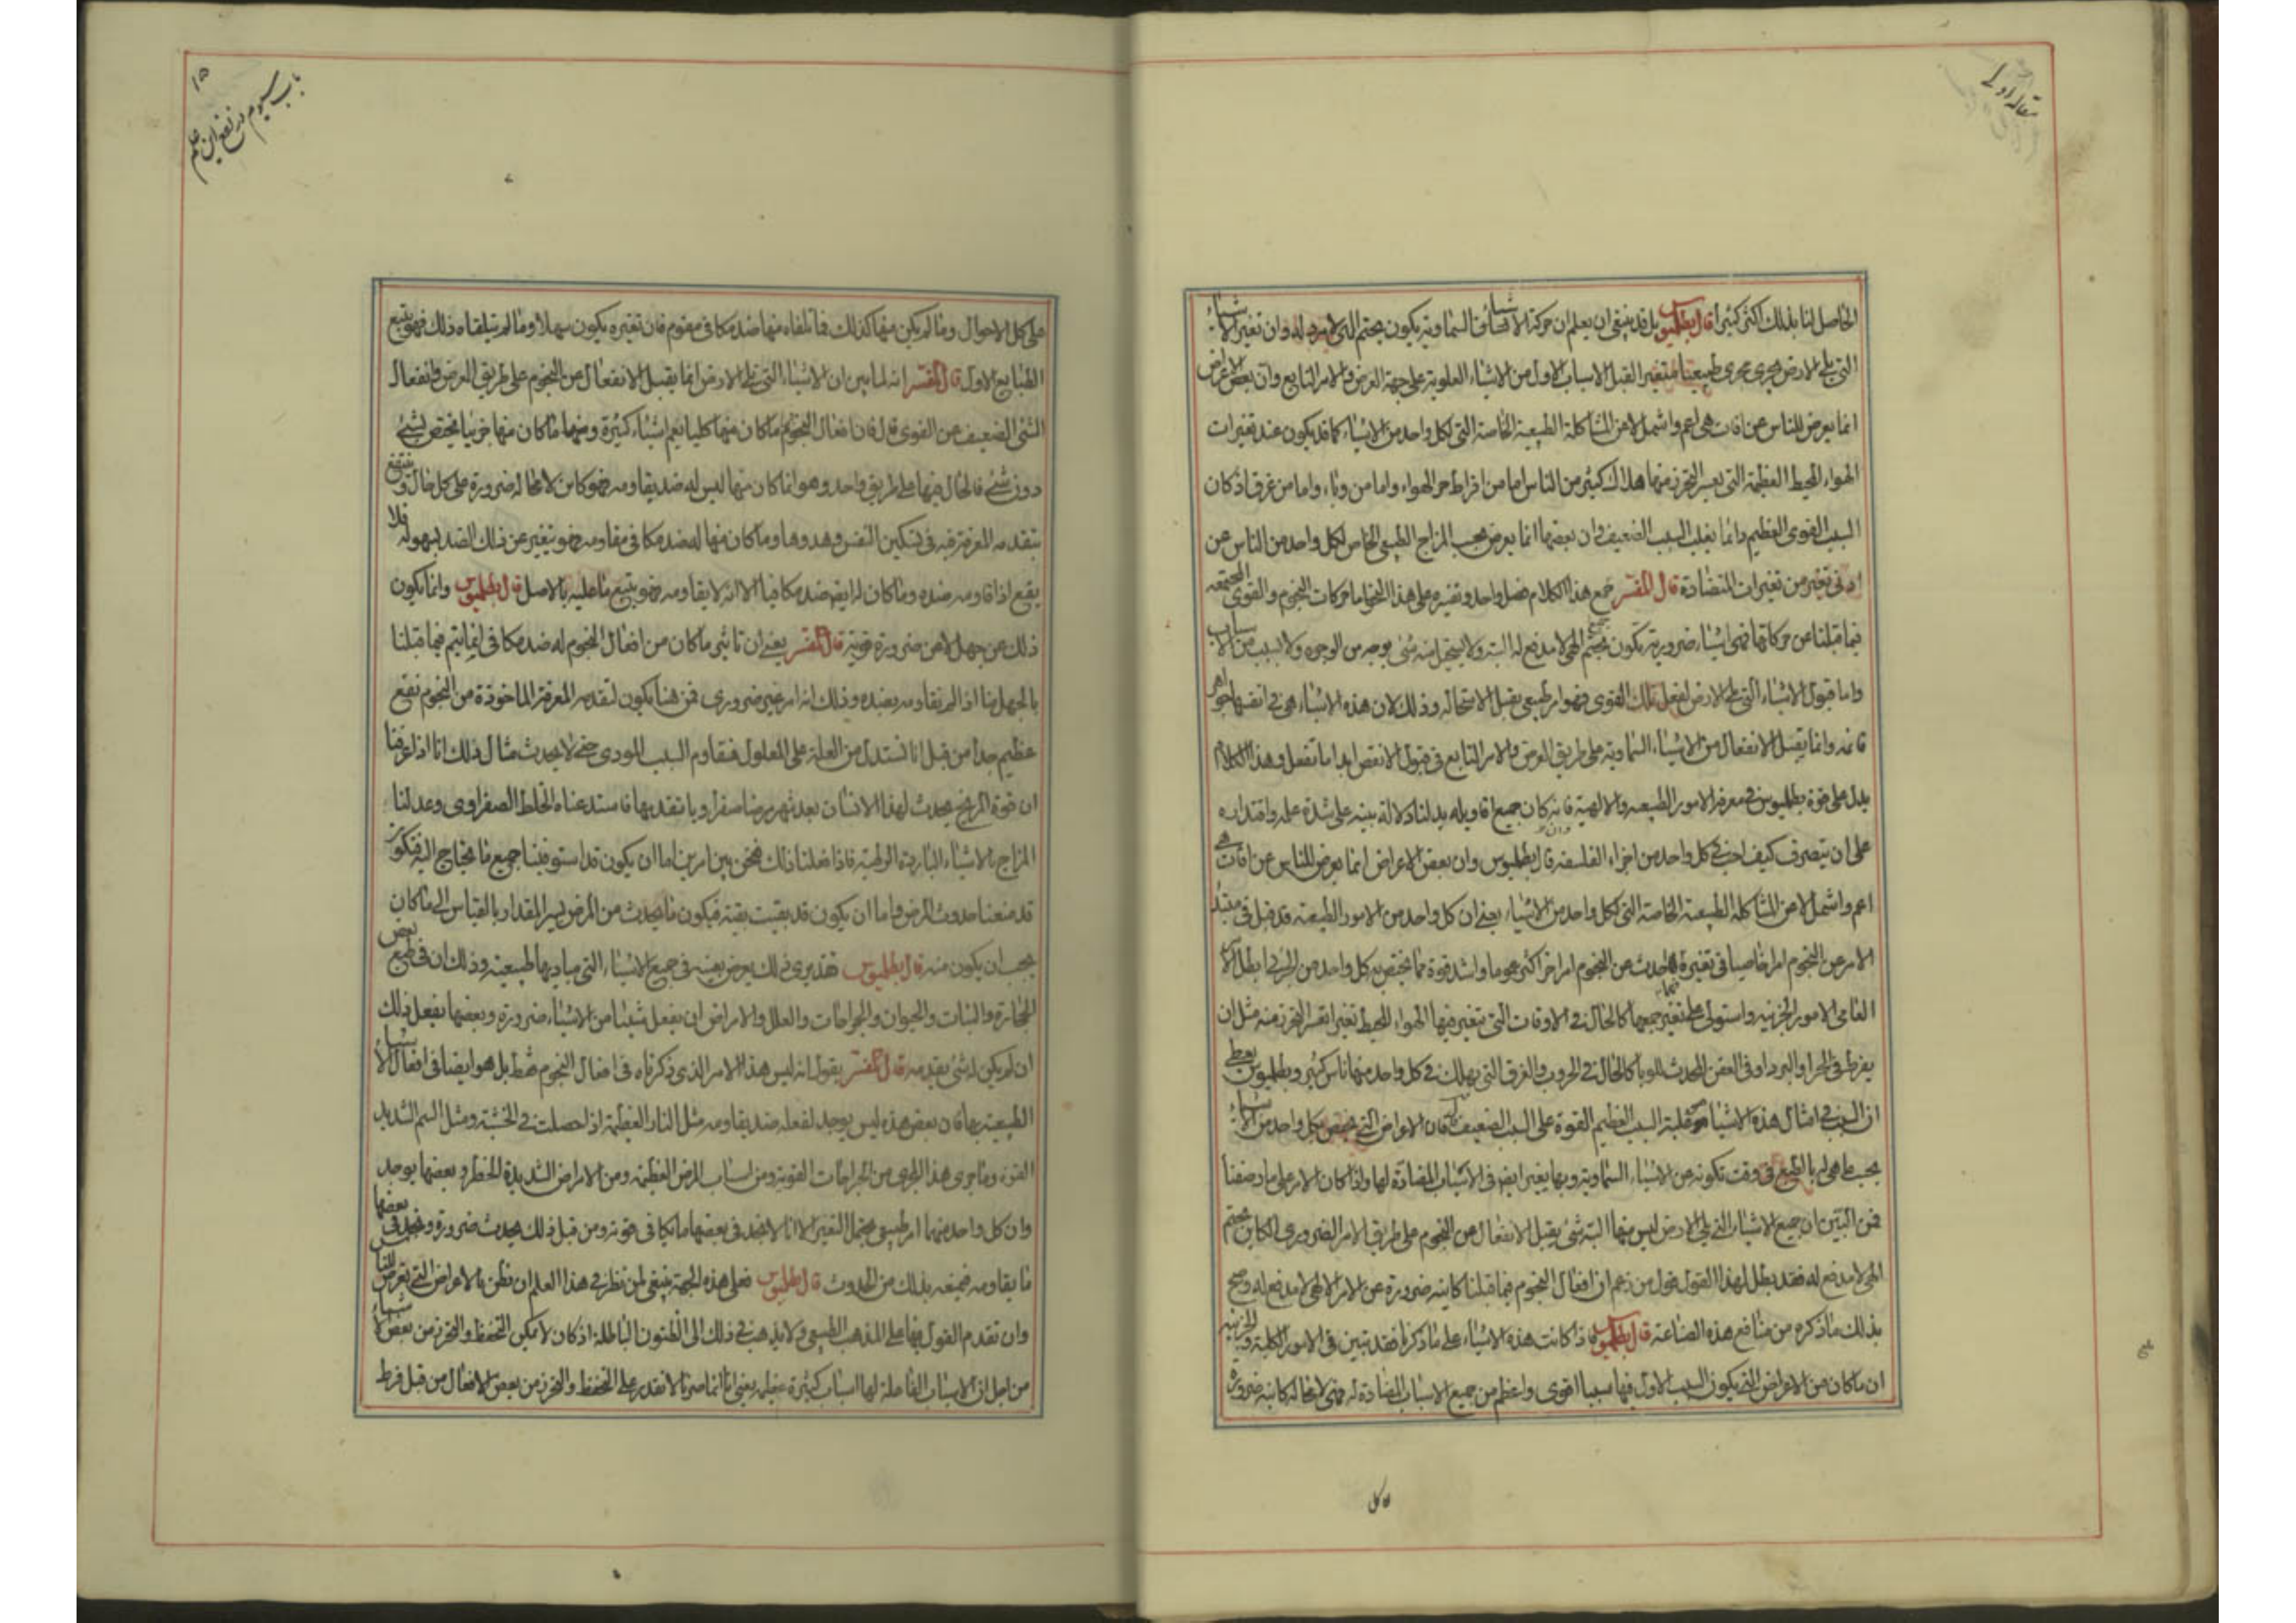 مقاله اولى
الخاصل لنا بذلك اكثر كثيرا قال بطلميوس بل قد ينبغى ان يعلم ان حركة الاشياء السماوية يكون بحتم الهى لا مرد له وان تغير الاشياء
التى على الارض يجرى مجرى طبيعيا متغيرا لقبل الاسباب الاول من الاشياء العلوية على جهة العرض والامر التابع وان بعض الاعراض
انما يعرض للناس من افات هى اعم واشمل لا من المشاكلة الطبيعية الخاصة التى لكل واحد من الاشياء كما قد يكون عند تغيرات
الهواء المحيط العظيمة التى يعسر التحرز منها هلاك كثير من الناس اما من افراط حر الهواء واما من وباء واما من غرق اذ كان
السبب القوى العظيم دائما يغلب السبب الضعيف وان بعضها انما يعرض بحسب المزاج الطبيعى الخاص لكل واحد من الناس عن
ادنى تغير من تغيرات المتضادة قال المفسر جمع هذا الكلام فصل واحد وتفسيره على هذا النحو اما حركات النجوم والقوى المجتمعة
فيما قبلنا عن حركاتها فهى اشياء ضرورية تكون بحتم الهى لا مدفع له البتة ولا يستحيل منه شئ بوجه من الوجوه ولا لسبب من الاسباب
واما قبول الاشياء التى على الارض لفعل تلك القوى فهو امر طبيعى يقبل الاستحالة وذلك لان هذه الاشياء هى فى انفسها جواهر
قائمة وانما يقبل الانفعال من الاشياء السماوية على طريق العرض والامر التابع فى قبول الانقص ابدا ما تفعل وهذا الكلام
يدل على قوة بطلميوس فى معرفة الامور الطبيعية والالهية فانه كان جميع اقاويله يدلنا دلالة بينة على شدة علمه واقتداره
على ان يتصرف كيف احب فى كل واحد من اجزاء الفلسفة قال بطلميوس وان بعض الاعراض انما يعرض للناس عن افات هى
اعم واشمل لا من المشاكلة الطبيعية الخاصة التى لكل واحد من الاشياء يعنى ان كل واحد من الامور الطبيعية قد قبل فى
الامر عن النجوم امرا خاصيا فى تغيره فاحدث عن النجوم امر اخر اكثر عموما واشد قوة مما يختص به كل واحد من الجزئى ابطل الامر
العامى الامور الجزئية واستولى على تغير جميعها كالحال فى الاوقات التى يتغير فيها الهواء المحيط تغيرا يعسر التحرز منه مثل ان
يفرط فى الحر او البرد او فى العفن المحدث للوباء كالحال فى الحروب والغرق التى يهلك فى كل واحد منها ناس كثير وبطلميوس يعطى
ان السبب فى امثال هذه الاشياء هو غلبة السبب العظيم القوة على السبب الضعيف فان الاعراض التى تخص كل واحد من الاشياء
بحسب ما هى له بالطبع فى وقت تكونه عن الاشياء السماوية وبها يغير ايضا فى الاشياء المضادة لها واذا كان الامر على ما وصفنا
فمن البين ان جميع الاشياء التى يلى الارض ليس منها البتة شئ يقبل الانفعال عن النجوم على طريق الامر الضرورى الكاين بحتم
الهى لا مدفع له فقد بطل لهذا القول قول من زعم ان افعال النجوم فيما قبلنا كاينة ضرورة عن الامر الالهى لا مدفع له وصح
بذلك ما ذكره من منافع هذه الصناعة قال بطلميوس فاذا كانت هذه الاشياء على ما ذكرنا فقد تبين فى الامور الكلية والجزئية
ان ما كان من الاعراض التى يكون السبب الاول فيها سببا اقوى واعظم من جميع الاسباب المضادة له فهى لا محالة كاينة ضرورة
١٥
باب سيوم در نفع اين علم
على كل الاحوال وما لم يكن منها كذلك فما تلقاه منها ضد مكافى مقوم فان تغيره يكون سهلا وما لم يتلقاه ذلك فهو يتبع
الطبايع الاول قال المفسر انه لما بين ان الاشياء التى على الارض انما يقبل الانفعال من النجوم على طريق العرض وانفعال
الشئ الضعيف عن القوى قال فان افعال النجوم ما كان منها كليا يعم اشياء كثيرة ومنها ما كان منها جزئيا يختص بشئ
دون شئ فالحال فيها على طريق واحد وهو انما كان منها ليس له ضد يقاومه فهو كاين لا محالة ضرورة على كل حال وينتفع
بتقدمه المعرفة فيه فى تسكين النفس وهدوها وما كان منها له ضد مكافى مقاومه فهو يتغير عن ذلك الضد بسهولة فلا
يقع اذا قاومه ضده وما كان لم ايضا ضد مكافيا الا انه لا يقاومه فهو يتبع ما عليه بالاصل قال بطلميوس وانما يكون
ذلك عن جهل لا من ضرورة قوية قال المفسر يعنى ان تاثير ما كان من افعال النجوم له ضد مكافى انما يتم فيما قبلنا
بالجهل منا اذا لم نقاومه بضده وذلك انه امر غير ضرورى فمن هنا يكون لتقدمه المعرفة الماخوذة من النجوم نفع
عظيم جدا من قبل انا نستدل من العلة على المعلول فنقاوم السبب المودى حتى لا يحدث مثال ذلك انا اذا عرفنا
ان قوة المريخ يحدث لهذا الانسان بعد شهر مرضا صفراويا تقدمنا فاستدعنا الخلط الصفراوى وعدلنا
المزاج بالاشياء الباردة الرطبة فاذا فعلنا ذلك فنحن بين امرين اما ان يكون قد استوفينا جميع ما يحتاج اليه فنكون
قد منعنا حدوث المرض واما ان يكون قد بقيت بقية فيكون ما يحدث من المرض يسير المقدار بالقياس الى ما كان
يجب ان يكون منه قال بطلميوس فقد يرى ذلك يعرض بعينه فى جميع الاشياء التى مباديها طبيعية وذلك ان فى طبع بعض
الحجارة والنبات والحيوان والجراحات والعلل والامراض ان يفعل شيئا من الاشياء ضرورة وبعضها يفعل ذلك
ان لم يكن له شئ يقدمه قال المفسر يقول انه ليس هذا الامر الذى ذكرناه فى افعال النجوم فقط بل هو ايضا فى افعال الاشياء
الطبيعية بها فان بعض هذه ليس يوجد لفعله ضد يقاومه مثل النار العظيمة اذا حصلت فى الخشبة ومثل السم الشديد
القوة وما جرى هذا المجرى من الجراحات القوية ومن اسباب المرض العظيمة ومن الامراض الشديدة الخطر وبعضها يوجد
وان كل واحد منهما امر طبيعى يحتمل التغير الا انا لا نجد فى بعضها ما يكافى قوته ومن قبل ذلك يحدث ضرورة ونجد فى بعضها
ما يقاومه فيمنعه بذلك من الحدوث قال بطلميوس فعلى هذه الجهة ينبغى لمن نظر فى هذا العلم ان نظن بالاعراض التى تعرض للناس
وان تقدم القول فيها على المذهب الطبيعى ولا يذهب فى ذلك الى الظنون الباطلة اذ كان لا يمكن التحفظ والتحرز من بعض الاشياء
من اجل ان الاسباب الفاعلة لها اسباب كثيرة عظيمة يعنى انا انما صرنا لا نقدر على التحفظ والتحرز من بعض الافعال من قبل فرط